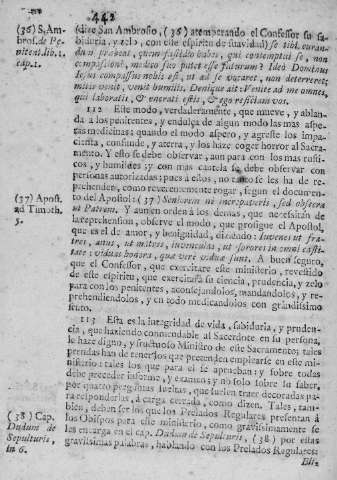 442
(36) S. Am-
bros. de Pe-
nitent. lib. 1.
cap. 1.
(dize San Ambrosio, (36) atemperando el Confessor su sa-
biduria, y zelo, con este espiritu de suavidad) se tibi curan-
dum præbeat, quem fastidio habes, qui contemptui se, non
compassioni, medico suo putet esse futurum? Ideò Dominus
Iesus compassus nobis est, ut ad se vocaret, non deterreret;
mitis venit, venit humilis. Denique ait: Venite ad me omnes,
qui laboratis, & onerati estis, & ego reficiam vos.
112 Este modo, verdaderamente, que mueve, y ablan-
da à los penitentes, y endulça de algun modo las mas aspe-
ras medicinas; quando el modo aspero, y agreste los impa-
cienta, confunde, y aterra, y los haze coger horror al Sacra-
mento. Y esto se debe observar, aun para con los mas rusti-
cos, y humildes; y con mas cautela se debe observar con
personas autorizadas; pues à estos, no tanto se les ha de re-
prehender, como reverencialmente rogar, segun el documen-
to del Apostol: (37) Seniorem ne increpaveris, sed obsecra
(37) Apost.
ad Timoth.
5.
ut Patrem. Y aun en orden à los demàs, que necessitàn de
la reprehension, observe el modo, que prosigue el Apostol,
que es el de amor, y benignidad, diziendo: Iuvenes ut fra-
tres, anus, ut matres, iuvenculas, ut sorores in omni casti-
tate: viduas honora, quæ verè viduæ sunt. A buen seguro,
que el Confessor, que exercitare este ministerio, revestido
de este espiritu, que exercitàra su ciencia, prudencia, y zelo
para con los penitentes, aconsejandolos, mandandolos, y re-
prehendiendolos, y en todo medicandolos con grandissimo
fruto.
113 Esta es la integridad de vida, sabiduria, y pruden-
cia, que haziendo commendable al Sacerdote en su persona,
le haze digno, y fructuoso Ministro de este Sacramento; tales
prendas han de tener los que pretenden emplearse en este mi-
nisterio; tales los que para el se aprueban; y sobre todas
debe preceder informe, y examen; y no solo sobre su saber,
por quatro preguntas sueltas, que suelen traer decoradas pa-
ra responderlas, à carga cerrada, como dizen. Tales, tam-
bien, deben ser los que los Prelados Regulares presentan à
los Obispos para este ministerio, como gravissimamente se
les encarga en el cap. Dudum de Sepulturis, (38) por estas
(38) Cap.
Dudum de
Sepulturis,
in 6.
gravissimas palabras, hablando con los Prelados Regulares:
Eli-